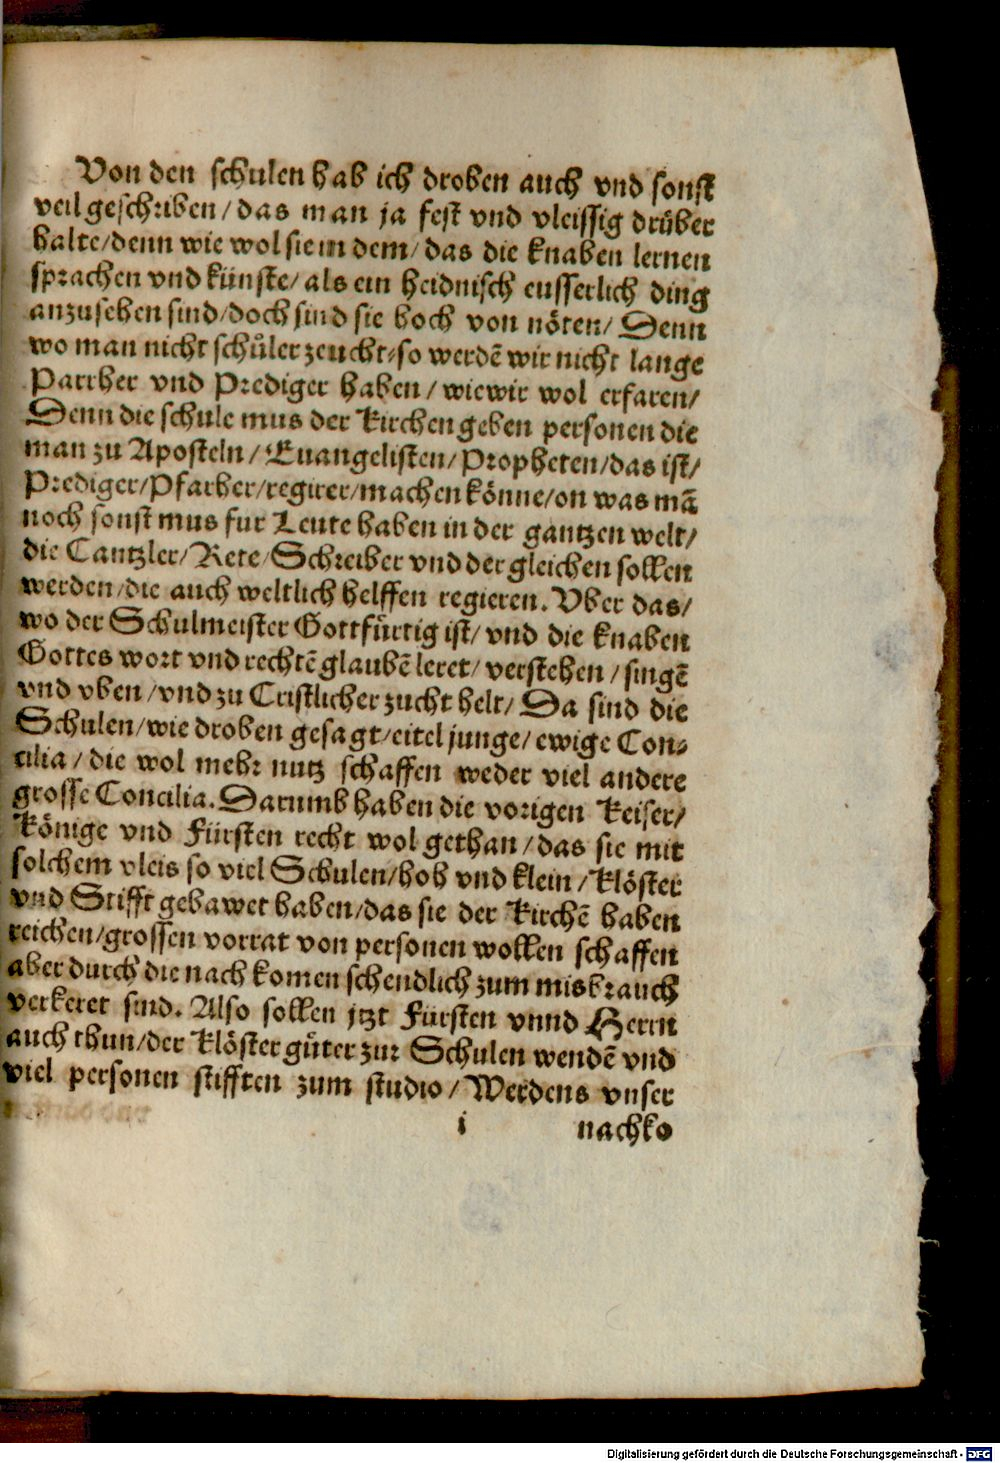 Von den schulen hab ich droben auch vnd sonst
veil geschriben/ das man ja fest vnd vleissig drüber
halte/denn wie wol sie in dem/ das die knaben lernen
sprachen vnd künste/ als ein heidnisch eusserlich ding
anzusehen sind/doch sind sie hoch von nöten/ Denn
wo man nicht schüler zeucht/so werdē wir nicht lange
Parrher vnd Prediger haben/ wiewir wol erfaren/
Denn die schule mus der Kirchen geben personen die
man zu Aposteln/ Euangelisten/ Propheten/das ist/
Prediger/Pfarher/regirer/machen könne/on was mā
noch sonst mus fur Leute haben in der gantzen welt/
die Cantzler/Rete/Schreiber vnd der gleichen sollen
werden/die auch weltlich helffen regieren. Vber das/
wo der Schulmeister Gottfürtig ist/ vnd die knaben
Gottes wort vnd rechtē glaubē leret/ verstehen/ singē
vnd vben/vnd zu Cristlicher zucht helt/ Da sind die
Schulen/wie droben gesagt/eitel junge/ ewige Con-
cilia/ die wol mehr nutz schaffen weder viel andere
grosse Concilia. Darumb haben die vorigen Keiser/
Könige vnd Fürsten recht wol gethan/das sie mit
solchem vleis so viel Schulen/hoh vnd klein/ Klöster
vnd Stifft gebawet haben/das sie der Kirchē haben
reichen/grossen vorrat von personen wollen schaffen
aber durch die nach komen schendlich zum misbrauch
verkeret sind. Also sollen jtzt Fürsten vnnd Herrn
auch thun/der Klöster güter zur Schulen wendē vnd
viel personen stifften zum studio/ Werdens vnser
i nachko
Digitalisierung gefördert durch die Deutsche Forschungsgemeinschaft - DFG